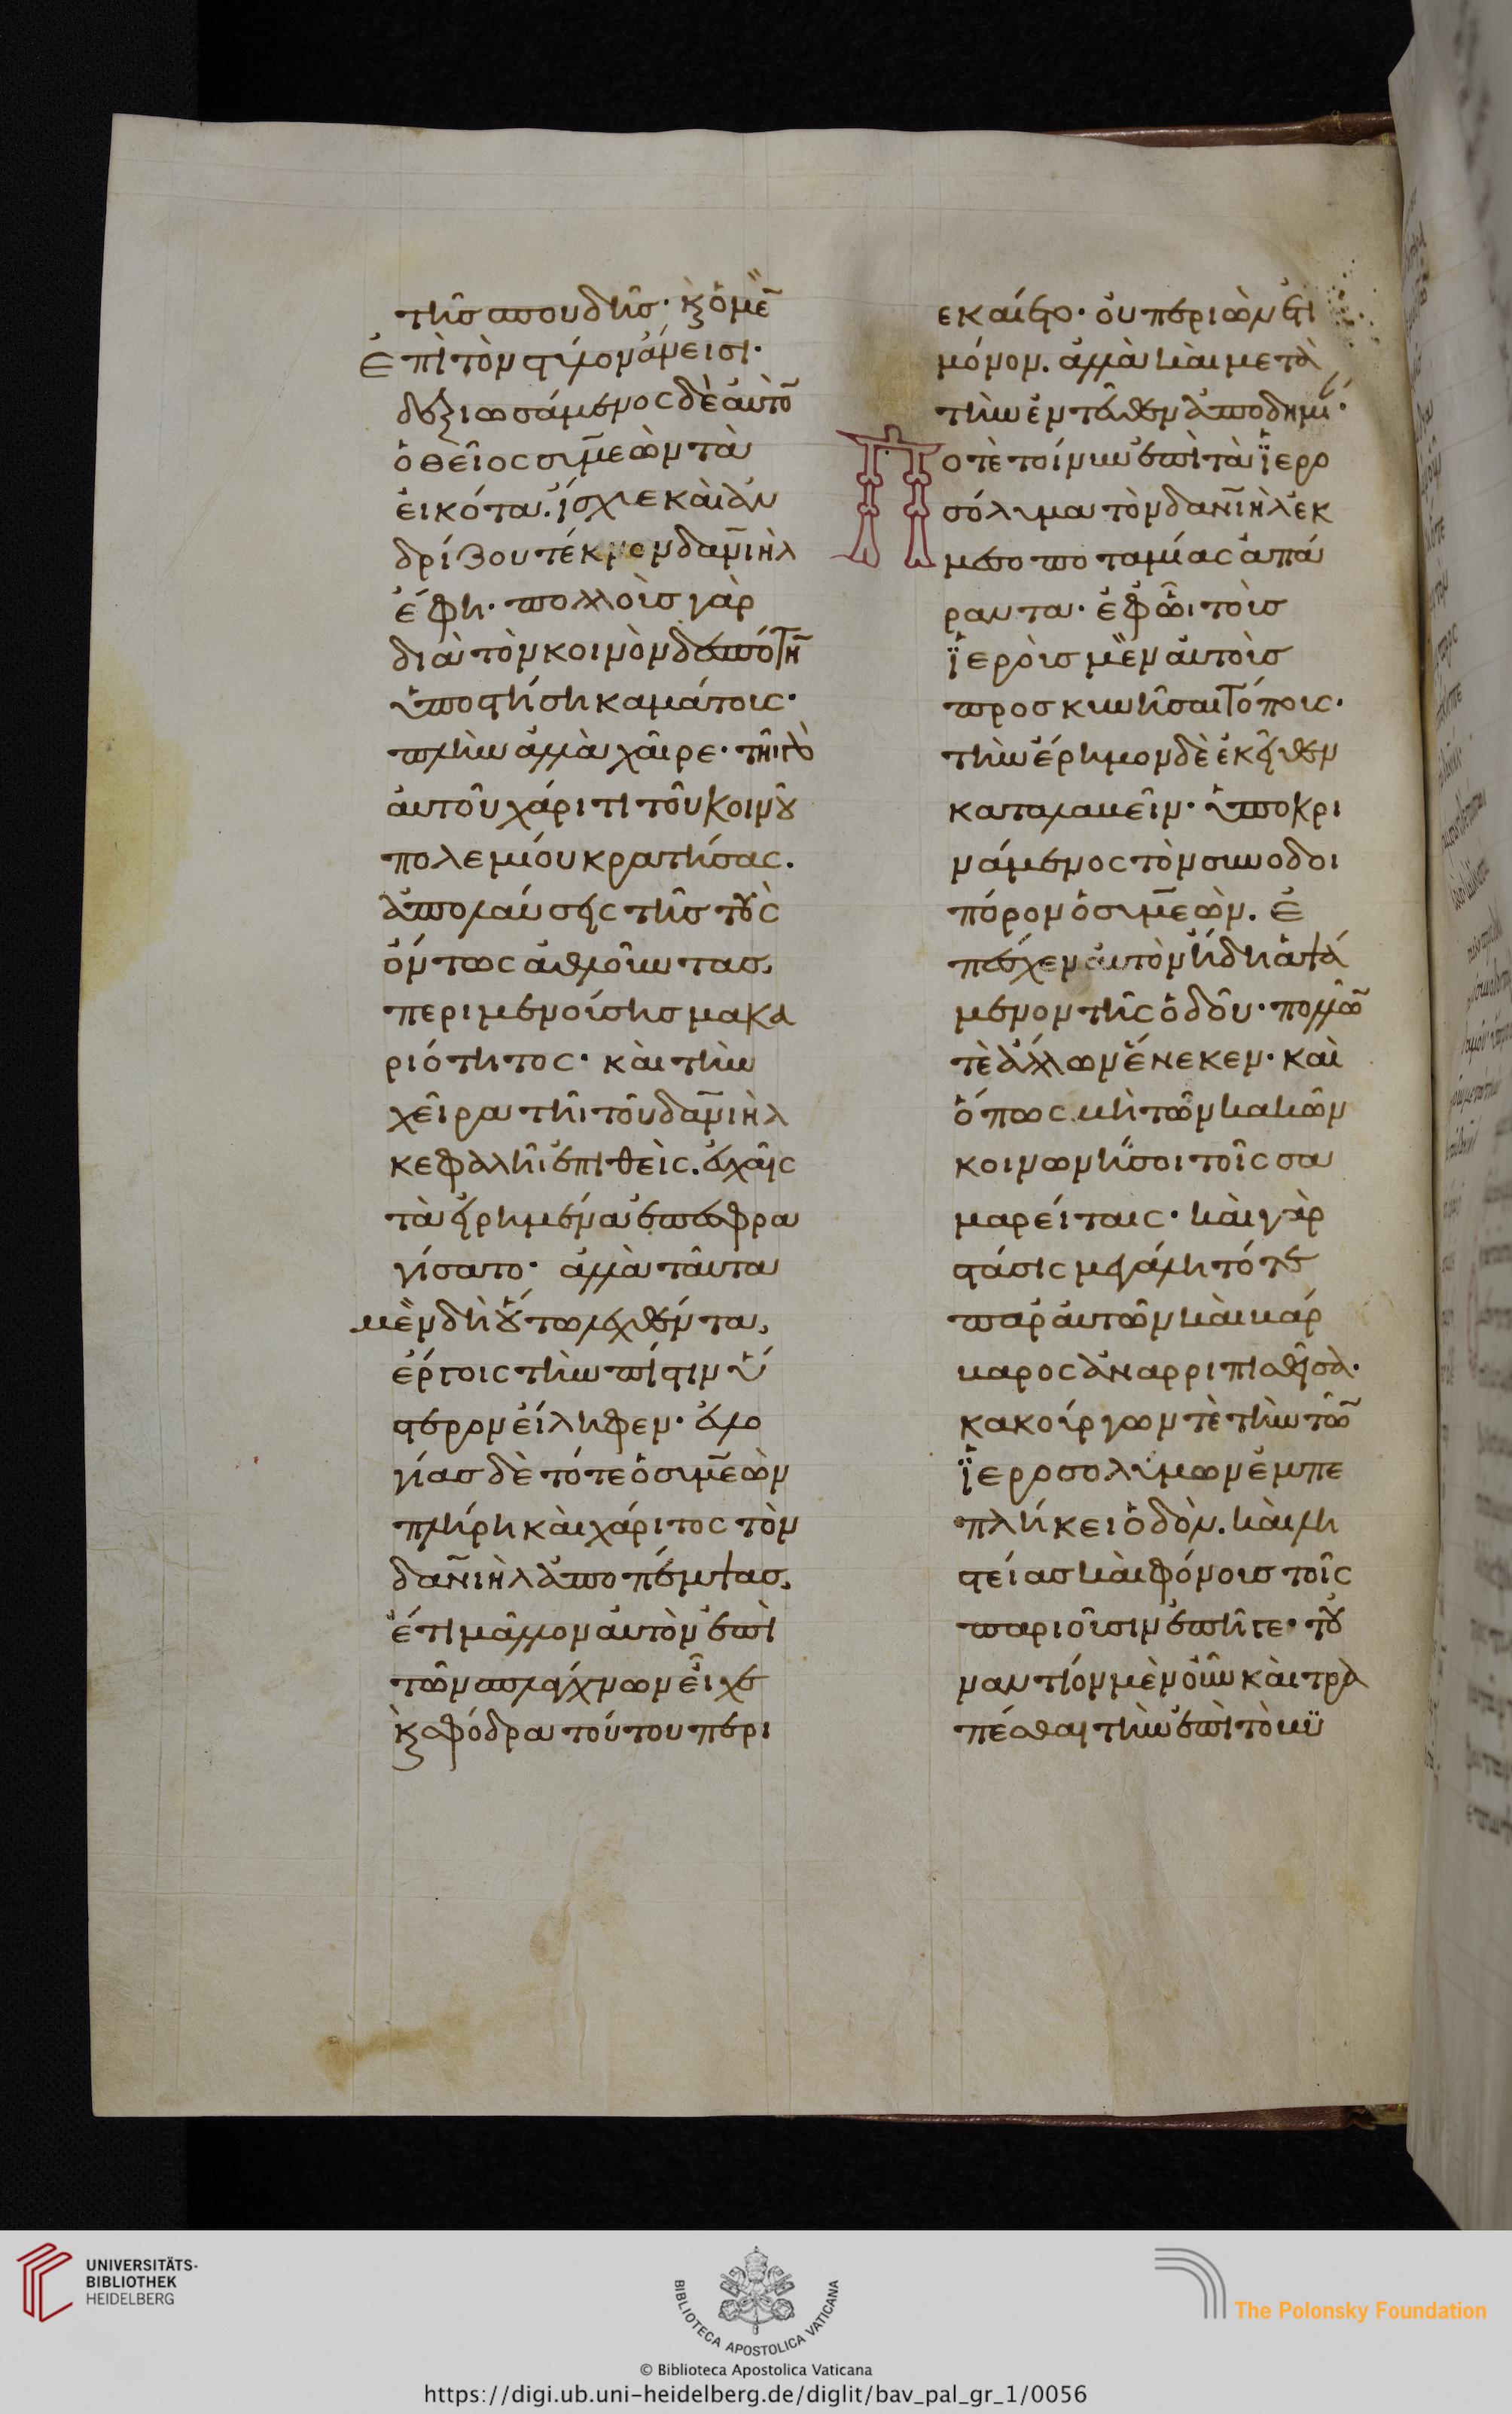 τῆς σπουδῆς· καὶ ὁ μὲν
ἐπὶ τὸν στύλον ἄνεισι·
δεξιωσάμενος δὲ αὐτὸν
ὁ θεῖος συμεὼν τὰ
εἰκότα. ἴσχυε καὶ ἀν
δρίζου τέκνον δανιὴλ
ἔφη· πολλοῖς γὰρ
διὰ τὸν κοινὸν δεσπότην
ὑποστήσῃ καμάτοις·
πλὴν ἀλλὰ χαῖρε· τῆι γὰρ
αὐτοῦ χάριτι τοῦ κοινοῦ
πολεμίου κρατήσας.
ἀπολαύσεις τῆς τοὺς
ὄντως ἀθλοῦντας,
περιμενούσης μακα
ριότητος· καὶ τὴν
χεῖρα τῆι τοῦ δανιὴλ
κεφαλῆι ἐπιθεὶς. εὐχαῖς
τὰ εἰρημένα ἐπεσφρα
γίσατο· ἀλλὰ ταῦτα
μὲν δὴ οὕτω λεχθέντα,
ἔργοις τὴν πίστιν ὕ
στερον εἴληφεν· εὐλο
γίας δὲ τότε ὁ συμεὼν
πλήρη καὶ χάριτος τὸν
δανιὴλ ἀποπέμψας,
ἔτι μᾶλλον αὐτὸν ἐπὶ
τῶν σπλάγχνων εἶχε
καὶ σφόδρα τούτου περι
εκαίετο· οὐ περιὼν ἔτι
μόνον. ἀλλὰ καὶ μετὰ
τὴν ἐντεῦθεν ἀποδημί·
Ποτὲ τοίνυν ἐπὶ τὰ ἱερο
σόλυμα τὸν δανιὴλ ἐκ
μεσοποταμίας ἀπά
ραντα· ἐφ' ὧι τοῖς
ἱεροῖς μὲν αὐτοῖς
προσκυνῆσαι τόποις·
τὴν ἔρημον δὲ ἐκεῖθεν
καταλαβεῖν· ὑποκρι
νάμενος τὸν συνοδοι
πόρον ὁ συμεὼν. ἐ
πέσχεν αὐτὸν ἤδη ἁψά
μενον τῆς ὁδοῦ· πολλῶν
τὲ ἄλλων ἕνεκεν· καὶ
ὅπως μὴ τῶν κακῶν
κοινωνήσοι τοῖς σα
μαρείταις· καὶ γὰρ
στάσις μεγάλη τότε
παρ' αὐτῶν καὶ βάρ
βαρος ἀναρριπισθεῖσα·
κακούργων τὲ τὴν τῶν
ἱεροσολύμων ἐμπε
πλήκει ὁδὸν. καὶ λη
στείας καὶ φόνοις τοῖς
παριοῦσιν ἐπῆγε· τοῦ
ναντίον μὲν οὖν καὶ τρα
πέσθαι τὴν ἐπὶ τὸ βυ
UNIVERSITÄTS-
BIBLIOTHEK
HEIDELBERG
BIBLIOTECA APOSTOLICA VATICANA
The Polonsky Foundation
© Biblioteca Apostolica Vaticana
https://digi.ub.uni-heidelberg.de/diglit/bav_pal_gr_1/0056